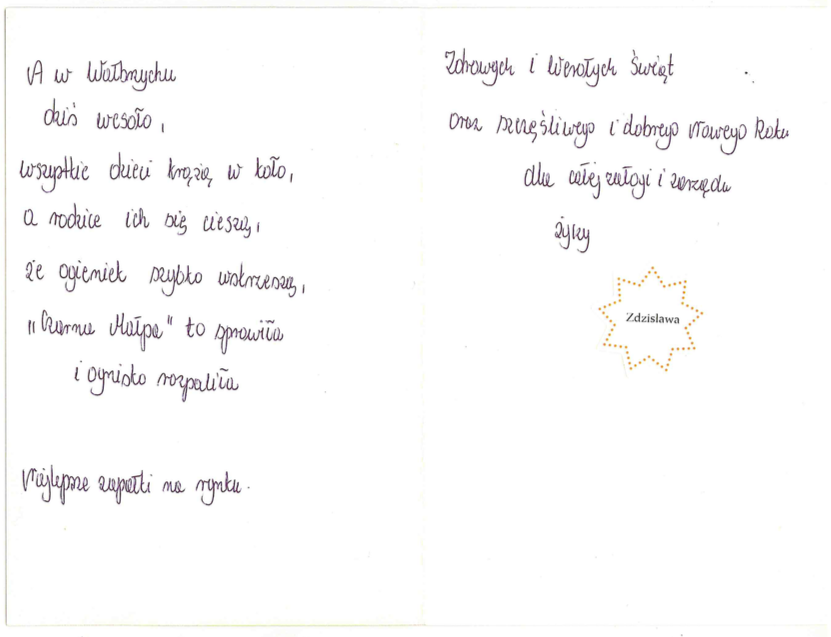 A w Wałbrzychu
dziś wesoło,
wszystkie dzieci krążą w koło,
a rodzice ich się cieszą,
że ogieniek szybko wskrzeszą,
"Czarna Małpa" to sprawiła
i ognisko rozpaliła
Najlepsze zapałki na rynku.
Zdrowych i Wesołych Świąt
oraz szczęśliwego i dobrego Nowego Roku
dla całej załogi i zarządu
życzy
Zdzislawa